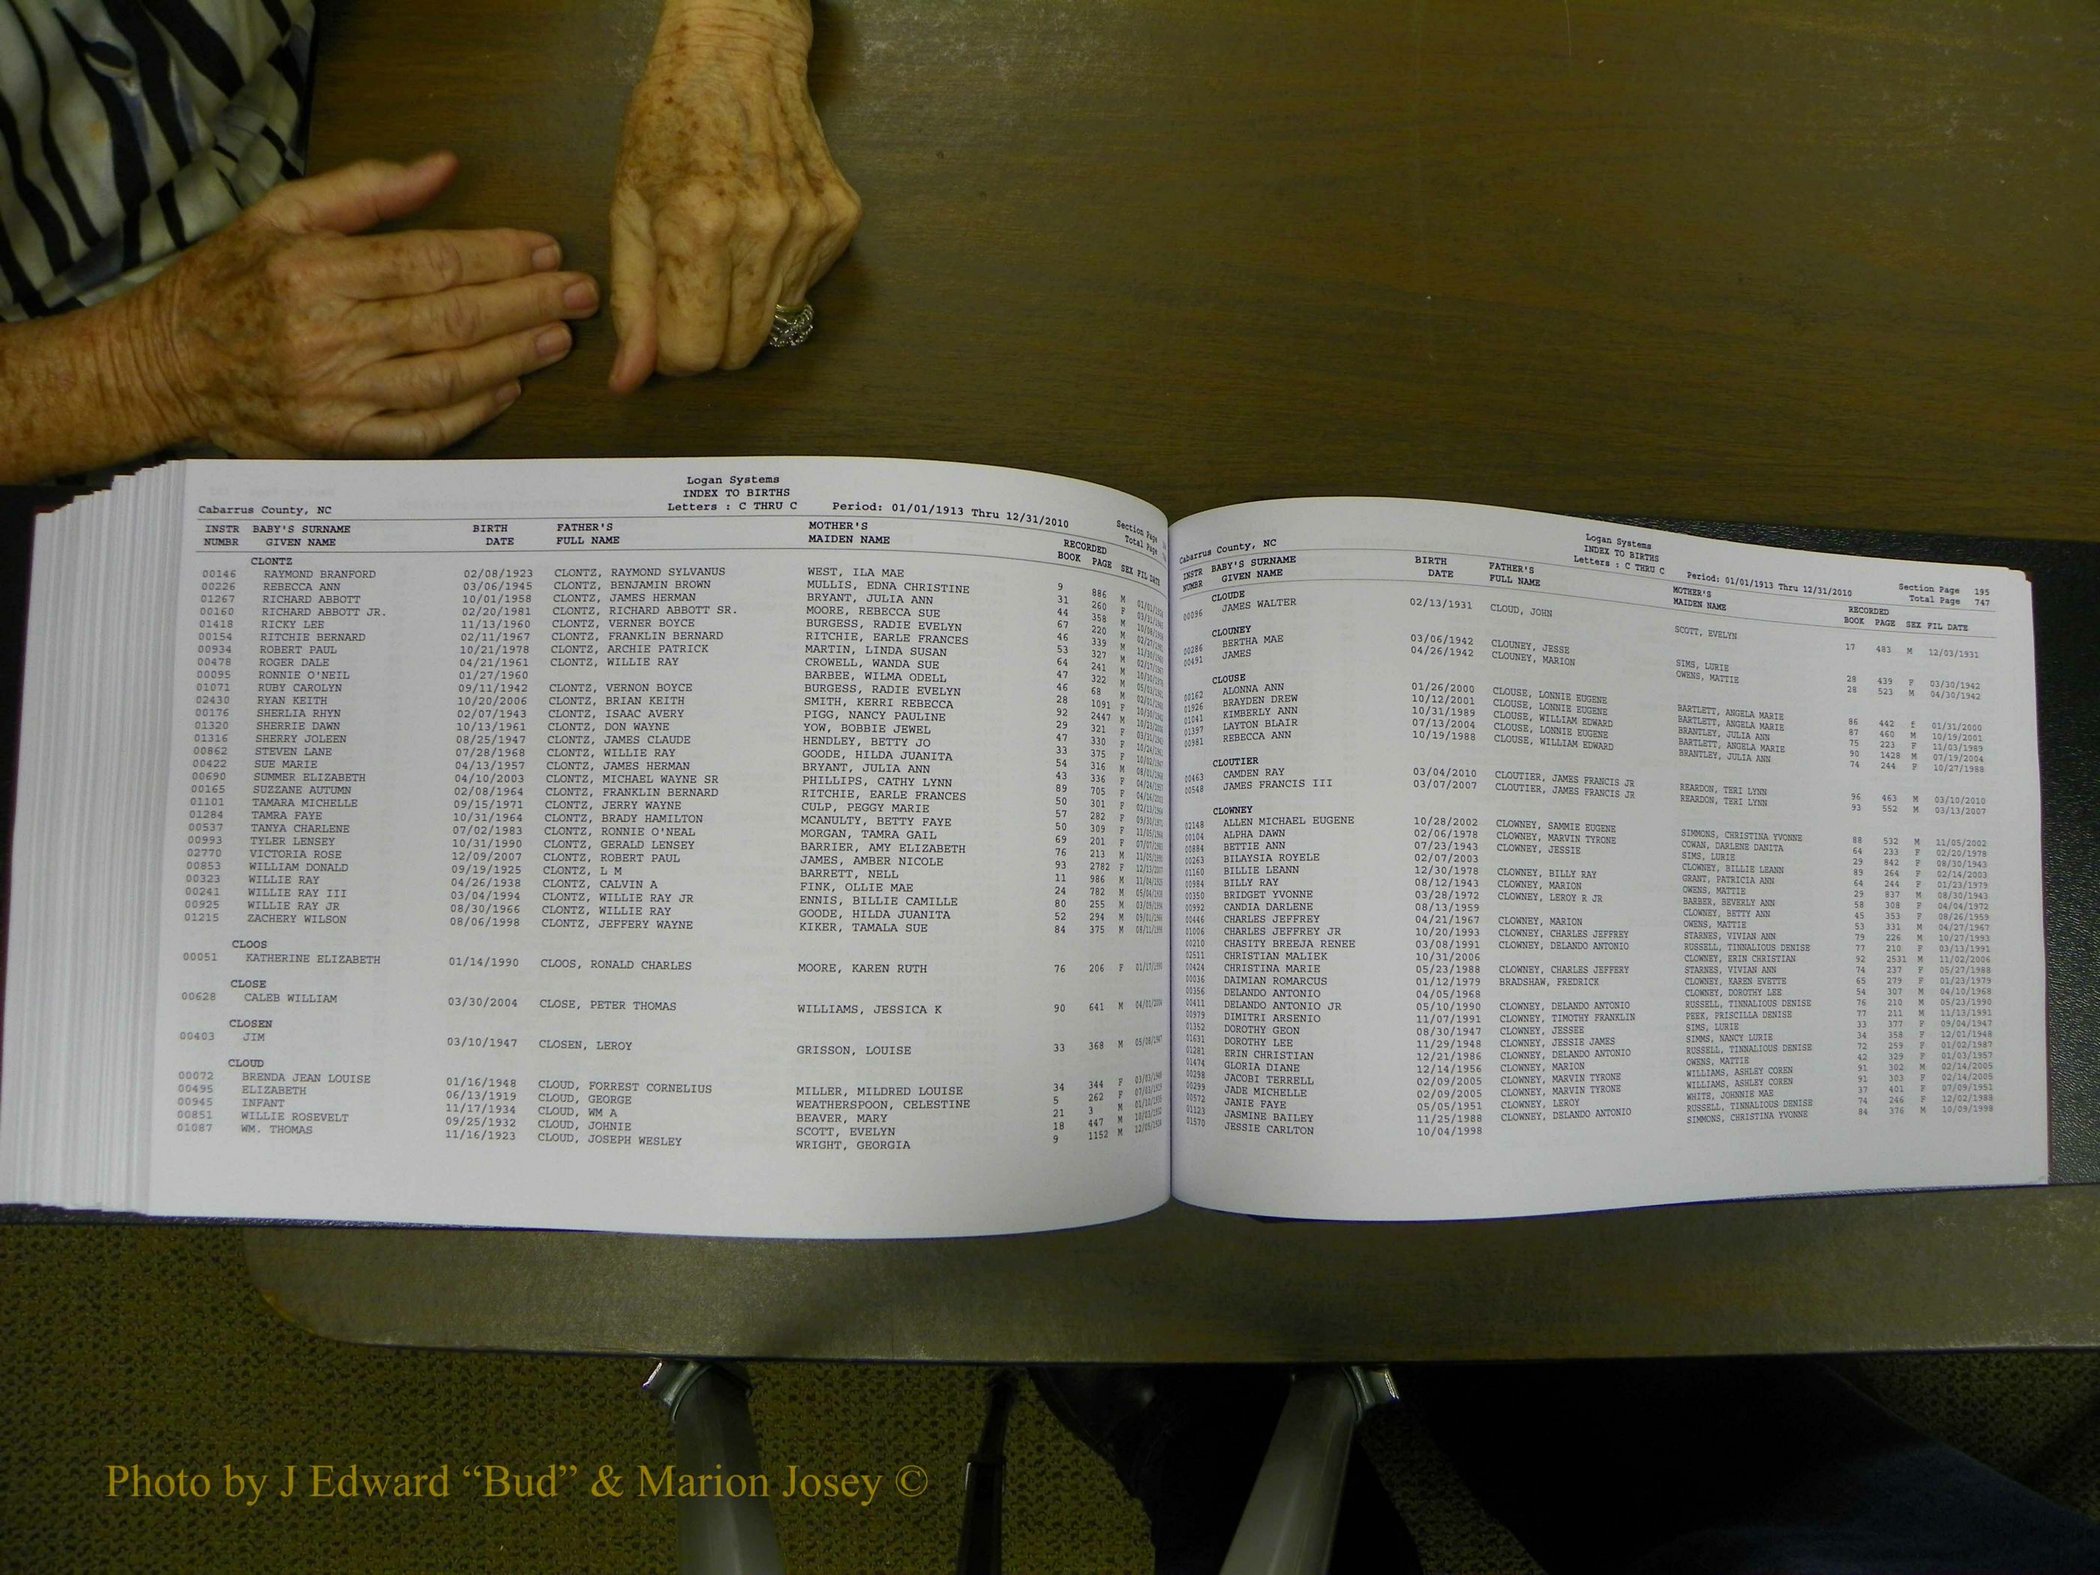 Logan Systems
INDEX TO BIRTHS
Cabarrus County, NC Letters : C THRU C Period: 01/01/1913 Thru 12/31/2010 Section Page
Total Page
INSTR BABY'S SURNAME BIRTH FATHER'S MOTHER'S RECORDED
NUMBR GIVEN NAME DATE FULL NAME MAIDEN NAME BOOK PAGE SEX FIL DATE
CLONTZ
00146 RAYMOND BRANFORD 02/08/1923 CLONTZ, RAYMOND SYLVANUS WEST, ILA MAE 9 886 M
00226 REBECCA ANN 03/06/1945 CLONTZ, BENJAMIN BROWN MULLIS, EDNA CHRISTINE 31 260 F
01267 RICHARD ABBOTT 10/01/1958 CLONTZ, JAMES HERMAN BRYANT, JULIA ANN 44 358 M
00160 RICHARD ABBOTT JR. 02/20/1981 CLONTZ, RICHARD ABBOTT SR. MOORE, REBECCA SUE 67 220 M
01418 RICKY LEE 11/13/1960 CLONTZ, VERNER BOYCE BURGESS, RADIE EVELYN 46 339 M
00154 RITCHIE BERNARD 02/11/1967 CLONTZ, FRANKLIN BERNARD RITCHIE, EARLE FRANCES 53 327 M
00934 ROBERT PAUL 10/21/1978 CLONTZ, ARCHIE PATRICK MARTIN, LINDA SUSAN 64 241 M
00478 ROGER DALE 04/21/1961 CLONTZ, WILLIE RAY CROWELL, WANDA SUE 47 322 M
00095 RONNIE O'NEIL 01/27/1960 BARBEE, WILMA ODELL 46 68 M
01071 RUBY CAROLYN 09/11/1942 CLONTZ, VERNON BOYCE BURGESS, RADIE EVELYN 28 1091 F
02430 RYAN KEITH 10/20/2006 CLONTZ, BRIAN KEITH SMITH, KERRI REBECCA 92 2447 M
00176 SHERLIA RHYN 02/07/1943 CLONTZ, ISAAC AVERY PIGG, NANCY PAULINE 29 321 F
01320 SHERRIE DAWN 10/13/1961 CLONTZ, DON WAYNE YOW, BOBBIE JEWEL 47 330 F
01316 SHERRY JOLEEN 08/25/1947 CLONTZ, JAMES CLAUDE HENDLEY, BETTY JO 33 375 F
00862 STEVEN LANE 07/28/1968 CLONTZ, WILLIE RAY GOODE, HILDA JUANITA 54 316 M
00422 SUE MARIE 04/13/1957 CLONTZ, JAMES HERMAN BRYANT, JULIA ANN 43 336 F
00690 SUMMER ELIZABETH 04/10/2003 CLONTZ, MICHAEL WAYNE SR PHILLIPS, CATHY LYNN 89 705 F
00165 SUZZANE AUTUMN 02/08/1964 CLONTZ, FRANKLIN BERNARD RITCHIE, EARLE FRANCES 50 301 F
01101 TAMARA MICHELLE 09/15/1971 CLONTZ, JERRY WAYNE CULP, PEGGY MARIE 57 282 F
01284 TAMRA FAYE 10/31/1964 CLONTZ, BRADY HAMILTON MCANULTY, BETTY FAYE 50 309 F
00537 TANYA CHARLENE 07/02/1983 CLONTZ, RONNIE O'NEAL MORGAN, TAMRA GAIL 69 201 F
00993 TYLER LENSEY 10/31/1990 CLONTZ, GERALD LENSEY BARRIER, AMY ELIZABETH 76 213 M
02770 VICTORIA ROSE 12/09/2007 CLONTZ, ROBERT PAUL JAMES, AMBER NICOLE 93 2782 F
00853 WILLIAM DONALD 09/19/1925 CLONTZ, L M BARRETT, NELL 11 986 M
00323 WILLIE RAY 04/26/1938 CLONTZ, CALVIN A FINK, OLLIE MAE 24 782 M
00241 WILLIE RAY III 03/04/1994 CLONTZ, WILLIE RAY JR ENNIS, BILLIE CAMILLE 80 255 M
00925 WILLIE RAY JR 08/30/1966 CLONTZ, WILLIE RAY GOODE, HILDA JUANITA 52 294 M
01215 ZACHERY WILSON 08/06/1998 CLONTZ, JEFFERY WAYNE KIKER, TAMALA SUE 84 375 M
CLOOS
00051 KATHERINE ELIZABETH 01/14/1990 CLOOS, RONALD CHARLES MOORE, KAREN RUTH 76 206 F 01/17/1990
CLOSE
00628 CALEB WILLIAM 03/30/2004 CLOSE, PETER THOMAS WILLIAMS, JESSICA K 90 641 M 04/01/2004
CLOSEN
00403 JIM 03/10/1947 CLOSEN, LEROY GRISSON, LOUISE 33 368 M 05/08/1947
CLOUD
00072 BRENDA JEAN LOUISE 01/16/1948 CLOUD, FORREST CORNELIUS MILLER, MILDRED LOUISE 34 344 F
00495 ELIZABETH 06/13/1919 CLOUD, GEORGE WEATHERSPOON, CELESTINE 5 262 F
00945 INFANT 11/17/1934 CLOUD, WM A BEAVER, MARY 21 3 M
00851 WILLIE ROSEVELT 09/25/1932 CLOUD, JOHNIE SCOTT, EVELYN 18 447 M
01087 WM. THOMAS 11/16/1923 CLOUD, JOSEPH WESLEY WRIGHT, GEORGIA 9 1152 M
Logan Systems
INDEX TO BIRTHS
Cabarrus County, NC Letters : C THRU C Period: 01/01/1913 Thru 12/31/2010 Section Page 195
Total Page 747
INSTR BABY'S SURNAME BIRTH FATHER'S MOTHER'S RECORDED
NUMBR GIVEN NAME DATE FULL NAME MAIDEN NAME BOOK PAGE SEX FIL DATE
CLOUDE
00096 JAMES WALTER 02/13/1931 CLOUD, JOHN SCOTT, EVELYN 17 483 M 12/03/1931
CLOUNEY
00286 BERTHA MAE 03/06/1942 CLOUNEY, JESSE SIMS, LURIE 28 439 F 03/30/1942
00491 JAMES 04/26/1942 CLOUNEY, MARION OWENS, MATTIE 28 523 M 04/30/1942
CLOUSE
00162 ALONNA ANN 01/26/2000 CLOUSE, LONNIE EUGENE BARTLETT, ANGELA MARIE 86 442 f 01/31/2000
01926 BRAYDEN DREW 10/12/2001 CLOUSE, LONNIE EUGENE BARTLETT, ANGELA MARIE 87 460 M 10/19/2001
01041 KIMBERLY ANN 10/31/1989 CLOUSE, WILLIAM EDWARD BRANTLEY, JULIA ANN 75 223 F 11/03/1989
01397 LAYTON BLAIR 07/13/2004 CLOUSE, LONNIE EUGENE BARTLETT, ANGELA MARIE 90 1428 M 07/19/2004
00981 REBECCA ANN 10/19/1988 CLOUSE, WILLIAM EDWARD BRANTLEY, JULIA ANN 74 244 F 10/27/1988
CLOUTIER
00463 CAMDEN RAY 03/04/2010 CLOUTIER, JAMES FRANCIS JR REARDON, TERI LYNN 96 463 M 03/10/2010
00548 JAMES FRANCIS III 03/07/2007 CLOUTIER, JAMES FRANCIS JR REARDON, TERI LYNN 93 552 M 03/13/2007
CLOWNEY
02148 ALLEN MICHAEL EUGENE 10/28/2002 CLOWNEY, SAMMIE EUGENE SIMMONS, CHRISTINA YVONNE 88 532 M 11/05/2002
00104 ALPHA DAWN 02/06/1978 CLOWNEY, MARVIN TYRONE COWAN, DARLENE DANITA 64 233 F 02/20/1978
00884 BETTIE ANN 07/23/1943 CLOWNEY, JESSIE SIMS, LURIE 29 842 F 08/30/1943
00263 BILAYSIA ROYELE 02/07/2003 CLOWNEY, BILLIE LEANN 89 264 F 02/14/2003
01160 BILLIE LEANN 12/30/1978 CLOWNEY, BILLY RAY GRANT, PATRICIA ANN 64 244 F 01/23/1979
00984 BILLY RAY 08/12/1943 CLOWNEY, MARION OWENS, MATTIE 29 837 M 08/30/1943
00350 BRIDGET YVONNE 03/28/1972 CLOWNEY, LEROY R JR BARBER, BEVERLY ANN 58 308 F 04/04/1972
00992 CANDIA DARLENE 08/13/1959 CLOWNEY, BETTY ANN 45 353 F 08/26/1959
00446 CHARLES JEFFREY 04/21/1967 CLOWNEY, MARION OWENS, MATTIE 53 331 M 04/27/1967
01006 CHARLES JEFFREY JR 10/20/1993 CLOWNEY, CHARLES JEFFREY STARNES, VIVIAN ANN 79 226 M 10/27/1993
00210 CHASITY BREEJA RENEE 03/08/1991 CLOWNEY, DELANDO ANTONIO RUSSELL, TINNALIOUS DENISE 77 210 F 03/13/1991
02511 CHRISTIAN MALIEK 10/31/2006 CLOWNEY, ERIN CHRISTIAN 92 2531 M 11/02/2006
00424 CHRISTINA MARIE 05/23/1988 CLOWNEY, CHARLES JEFFERY STARNES, VIVIAN ANN 74 237 F 05/27/1988
00036 DAIMIAN ROMARCUS 01/12/1979 BRADSHAW, FREDRICK CLOWNEY, KAREN EVETTE 65 279 F 01/23/1979
00356 DELANDO ANTONIO 04/05/1968 CLOWNEY, DOROTHY LEE 54 307 M 04/10/1968
00411 DELANDO ANTONIO JR 05/10/1990 CLOWNEY, DELANDO ANTONIO RUSSELL, TINNALIOUS DENISE 76 210 M 05/23/1990
00979 DIMITRI ARSENIO 11/07/1991 CLOWNEY, TIMOTHY FRANKLIN PEEK, PRISCILLA DENISE 77 211 M 11/13/1991
01352 DOROTHY GEON 08/30/1947 CLOWNEY, JESSEE SIMS, LURIE 33 377 F 09/04/1947
01631 DOROTHY LEE 11/29/1948 CLOWNEY, JESSIE JAMES SIMMS, NANCY LURIE 34 358 F 12/01/1948
01281 ERIN CHRISTIAN 12/21/1986 CLOWNEY, DELANDO ANTONIO RUSSELL, TINNALIOUS DENISE 72 259 F 01/02/1987
01474 GLORIA DIANE 12/14/1956 CLOWNEY, MARION OWENS, MATTIE 42 329 F 01/03/1957
00298 JACOBI TERRELL 02/09/2005 CLOWNEY, MARVIN TYRONE WILLIAMS, ASHLEY COREN 91 302 M 02/14/2005
00299 JADE MICHELLE 02/09/2005 CLOWNEY, MARVIN TYRONE WILLIAMS, ASHLEY COREN 91 303 F 02/14/2005
00572 JANIE FAYE 05/05/1951 CLOWNEY, LEROY WHITE, JOHNNIE MAE 37 401 F 07/09/1951
01123 JASMINE BAILEY 11/25/1988 CLOWNEY, DELANDO ANTONIO RUSSELL, TINNALIOUS DENISE 74 246 F 12/02/1988
01570 JESSIE CARLTON 10/04/1998 SIMMONS, CHRISTINA YVONNE 84 376 M 10/09/1998
Photo by J Edward “Bud” & Marion Josey ©